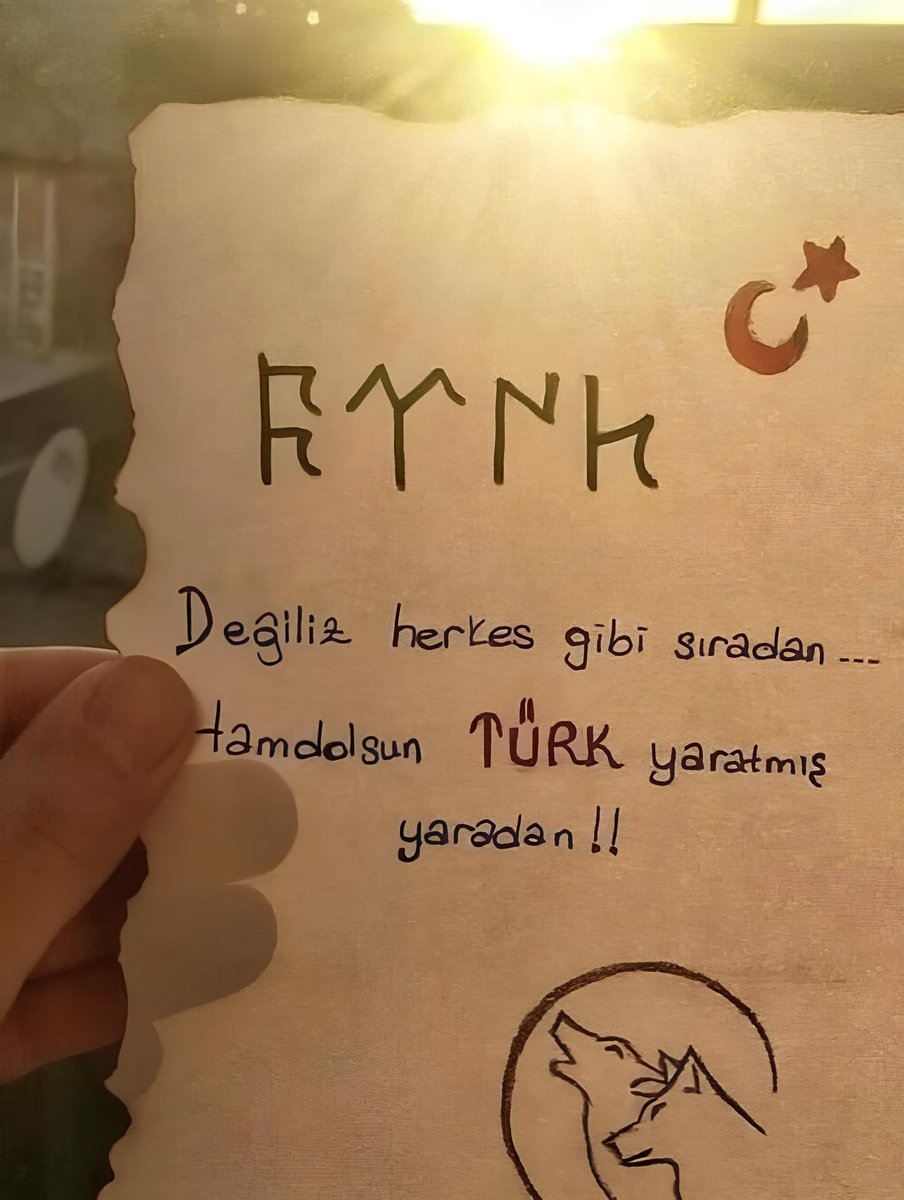 𐱅𐰇𐰼𐰰
Değiliz herkes gibi sıradan ...
Hamdolsun TÜRK yaratmış
yaradan !!